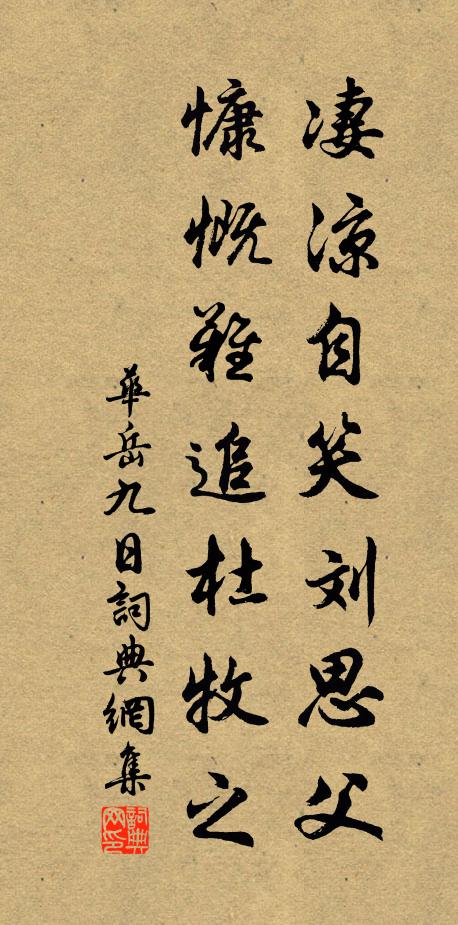 凄涼自笑刘思父
慷慨難追杜牧之
華岳九日詞典網集
詞典網印